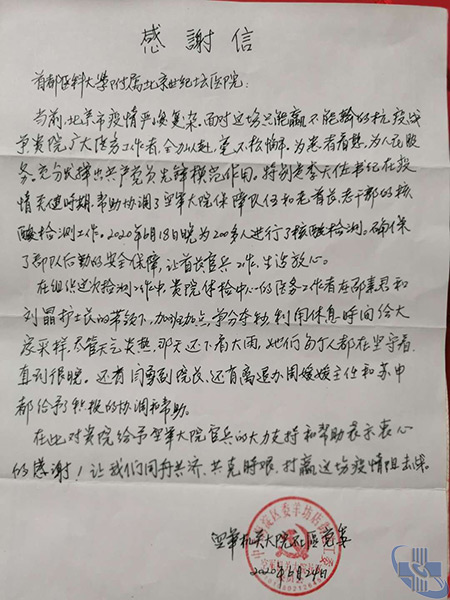 感謝信
首都医科大學附属北京世纪坛医院：
当前,北京市疫情严峻复杂。面对这场只能赢不能输的抗疫战
争,贵院广大医务工作者,全力以赴,毫不松懈,为患者着想,为人民服
务,充分发挥出共产党员先锋模范作用。特别是李天佐书记在疫
情关键时期,帮助协调了空军大院保障队伍和老首长、老干部的核
酸检测工作。2020年6月18日晚为200多人进行了核酸检测。确保
了部队后勤的安全保障,让首长官兵工作、生活放心。
在组织这次检测工作中,贵院体检中心的医务工作者在邵素君和
刘晶护士长的带领下,加班加点,争分夺秒,利用休息时间给大
家采样,尽管天气炎热,那天还下着大雨,她们每个人都在坚守着,
直到很晚。还有闫勇副院长,还有离退办周媛媛主任和苏申
都给予积极的协调和帮助。
在此对贵院给予空军大院官兵的大力支持和帮助表示衷心
的感谢!让我们同舟共济、共克时艰,打赢这场疫情阻击战。
空军机关大院社区党委
2020年6月24日